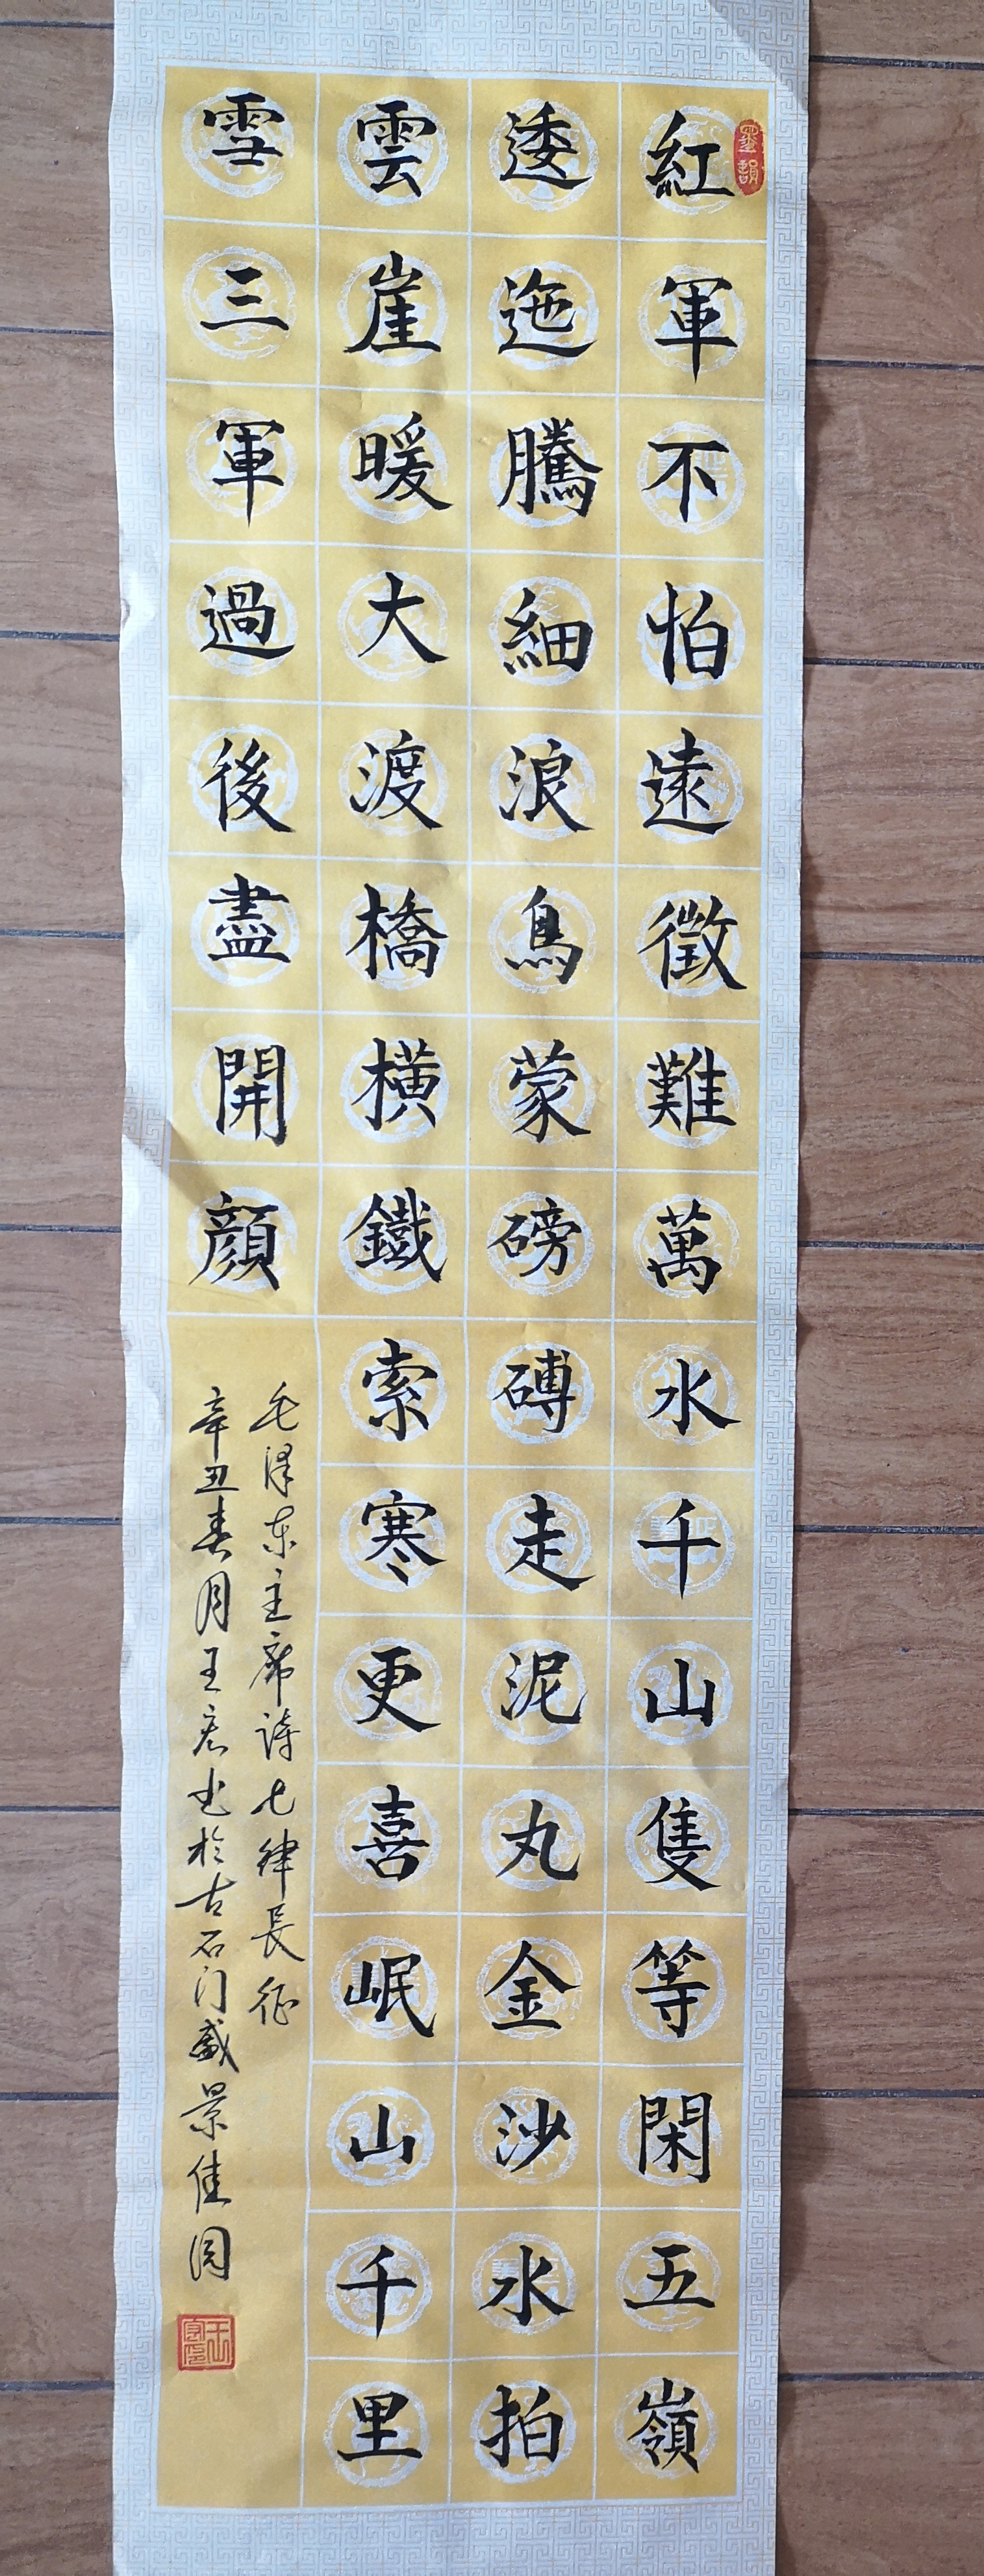 紅軍不怕遠徵難萬水千山隻等閑五嶺
逶迤騰細浪鳥蒙磅磗走泥丸金沙水拍
雲崖暖大渡橋横鐵索寒更喜岷山千里
雪三軍過後盡開顔
毛泽东主席詩七律長征
辛丑春月王宏书於古石门盛景佳园
墨韻